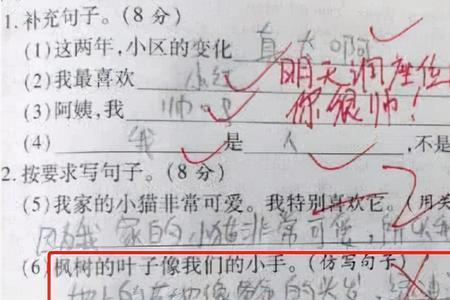 1.补充句子。(8分)
(1)这两年,小区的变化 真大啊
(2)我最喜欢 小红 明天调座位
(3)阿姨,我 帅吗 你很帅!
(4) 我 是 人 ,不是
2.按要求写句子。(8分)
(5)我家的小猫非常可爱。我特别喜欢它。(用关
因为我家的小猫非常可爱,所以我
(6)枫树的叶子像我们的小手。(仿写句子)
地上的